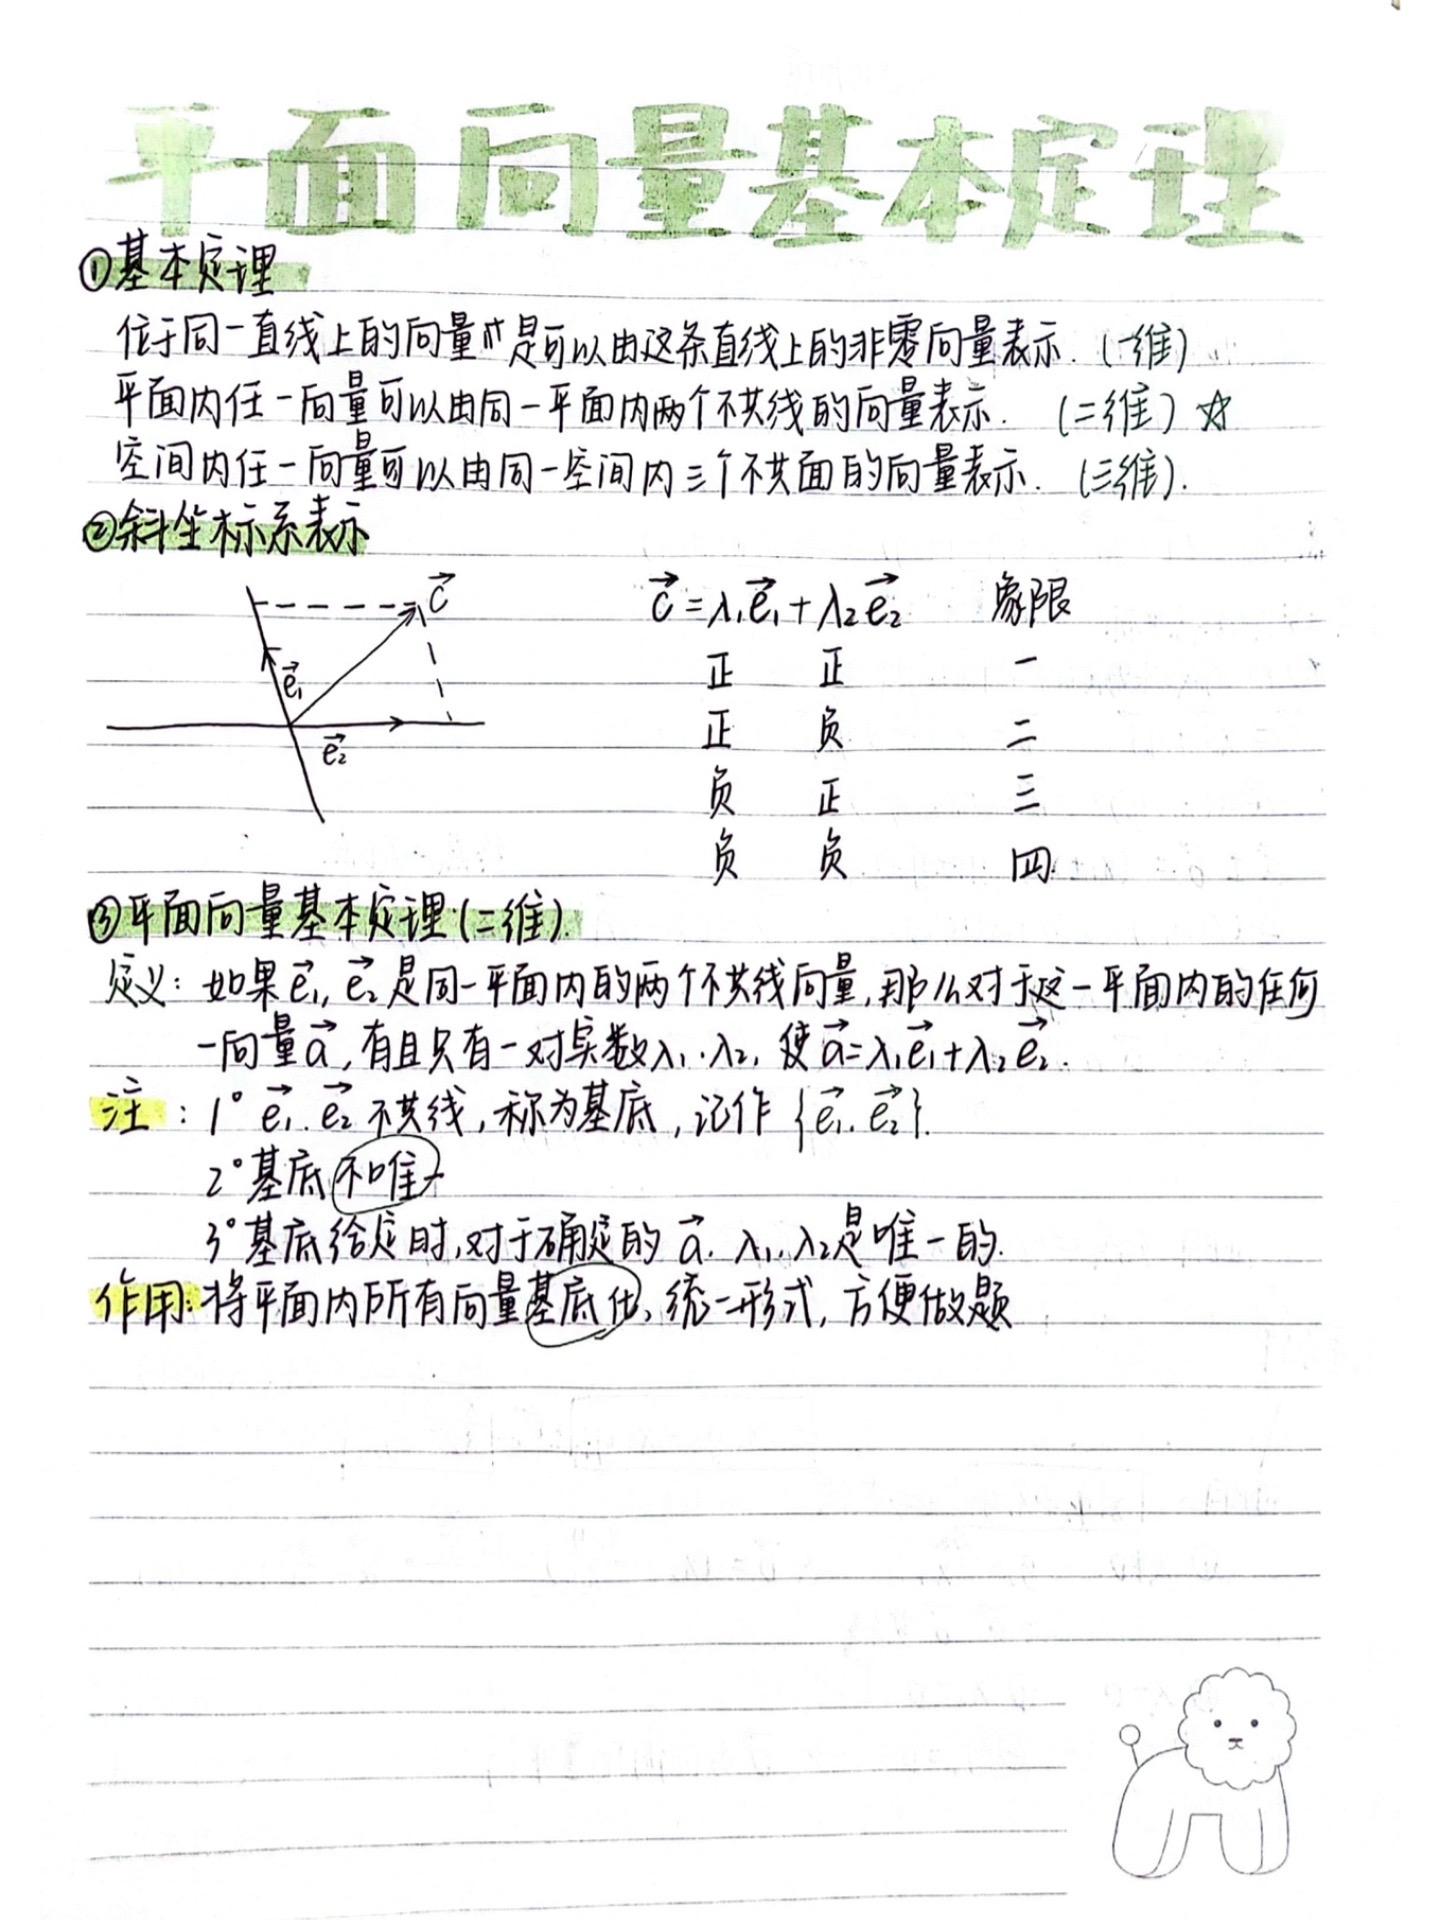 平面向量基本定理
①基本定理
位于同一直线上的向量都是可以由这条直线上的非零向量表示.(一维)
平面内任一向量可以由同一平面内两个不共线的向量表示.(二维)☆
空间内任一向量可以由同一空间内三个不共面的向量表示.(三维).
②斜坐标系表示
c⃗
e⃗₁
e⃗₂
c⃗=λ₁e⃗₁+λ₂e⃗₂ 象限
正 正 一
正 负 二
负 正 三
负 负 四.
③平面向量基本定理(二维).
定义:如果e⃗₁,e⃗₂是同一平面内的两个不共线向量,那么对于这一平面内的任何
一向量a⃗,有且只有一对实数λ₁.λ₂,使a⃗=λ₁e⃗₁+λ₂e⃗₂.
注:1°e⃗₁.e⃗₂不共线,称为基底,记作{e⃗₁.e⃗₂}.
2°基底不唯一
3°基底给定时,对于确定的a⃗.λ₁.λ₂是唯一的.
作用:将平面内所有向量基底化、统一形式,方便做题